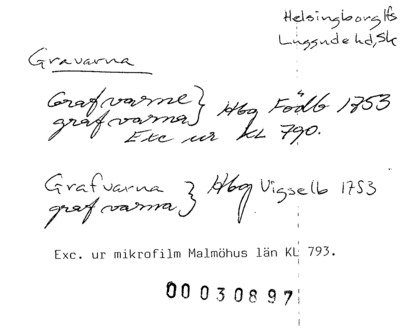 Helsingborg lfs
Luggude hd, Sk
Gravarna
Grafvarne } Hbg Födb 1753
grafvarna
Exc ur KL 790.
Grafvarna } Hbg Vigselb 1753
grafvarna
Exc. ur mikrofilm Malmöhus län KL 793.
00030897